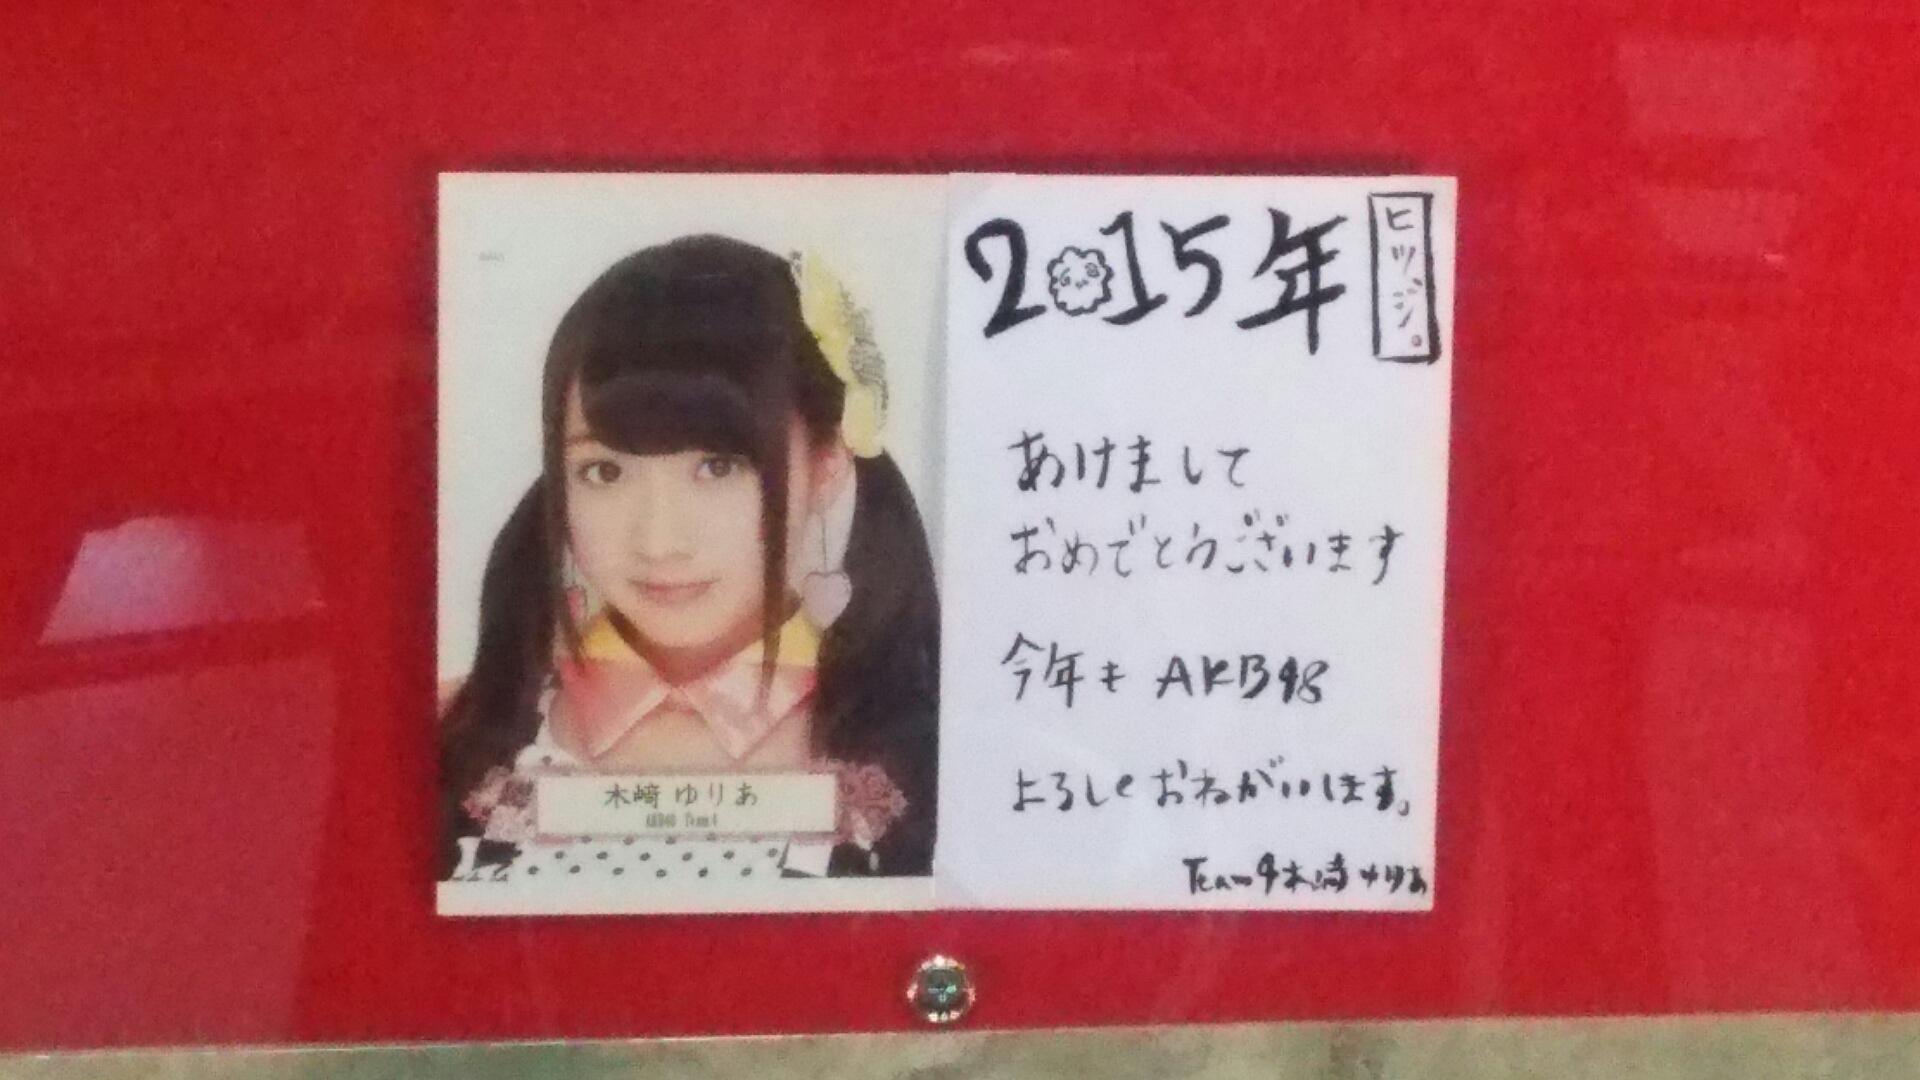 木﨑 ゆりあ
AKB48 Team4
2015年
ヒツジ。
あけまして
おめでとうございます
今年も AKB48
よろしくおねがいします。
Team4木﨑ゆりあ